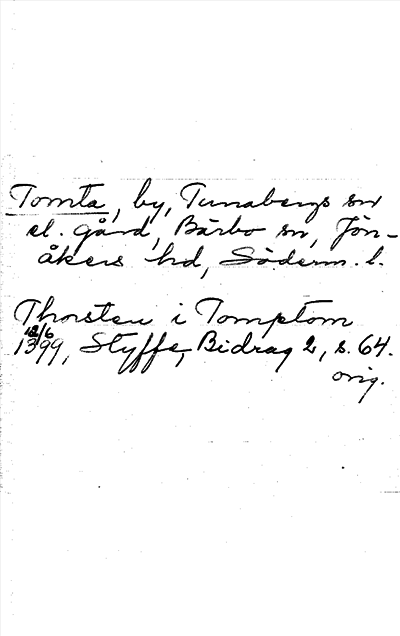 Tomta, by, Tunabergs sn
el. gård, Bärbo sn, Jön-
åkers hd, Söderm. l.
Thorsten i Tomptom
12/6
1399, Styffe, Bidrag 2, s. 64.
orig.